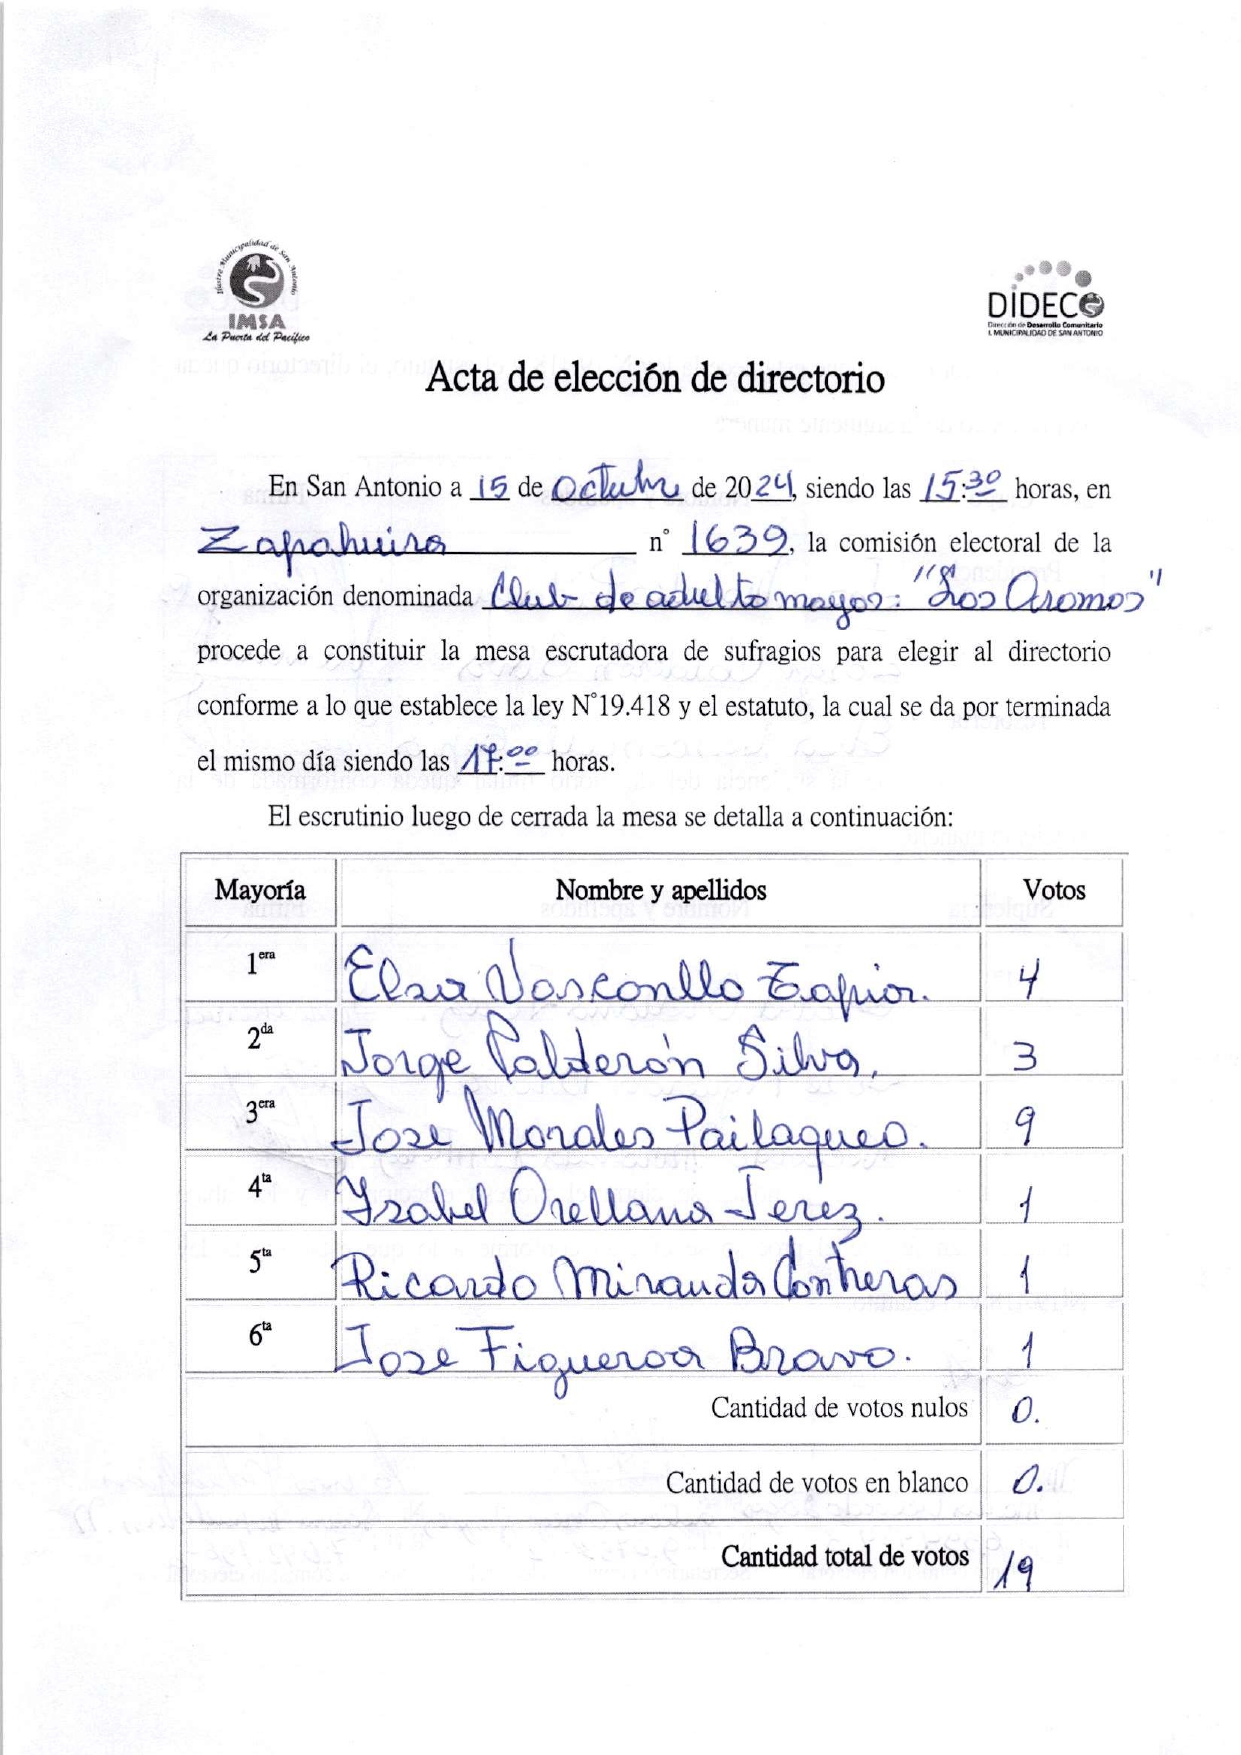 Ilustre Municipalidad de San Antonio
IMSA
La Puerta del Pacífico
DIDECO
Dirección de Desarrollo Comunitario
I. MUNICIPALIDAD DE SAN ANTONIO
Acta de elección de directorio
En San Antonio a 15 de Octubre de 2024, siendo las 15:30 horas, en
Zapahuira n° 1639, la comisión electoral de la
organización denominada Club de adulto mayor: "Los Aromos"
procede a constituir la mesa escrutadora de sufragios para elegir al directorio
conforme a lo que establece la ley N°19.418 y el estatuto, la cual se da por terminada
el mismo día siendo las 17:00 horas.
El escrutinio luego de cerrada la mesa se detalla a continuación:
Mayoría Nombre y apellidos Votos
1era Elsa Vasconllo Tapia. 4
2da Jorge Calderón Silva, 3
3era Jose Morales Pailaqueo. 9
4ta Ysabel Orellana Jerez. 1
5ta Ricardo Miranda Contreras 1
6ta Jose Figueroa Bravo. 1
Cantidad de votos nulos 0.
Cantidad de votos en blanco 0.
Cantidad total de votos 19